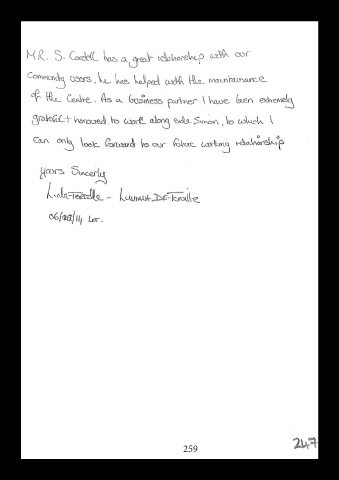 MR. S. Cordell has a great relationship with our
Community users, he has helped with the maintainance
of the Centre. As a business partner I have been extremely
grateful + honoured to work along side Simon, to which I
can only look forward to our future working relationship
yours Sincerly
L.de
06/08/14
259
247